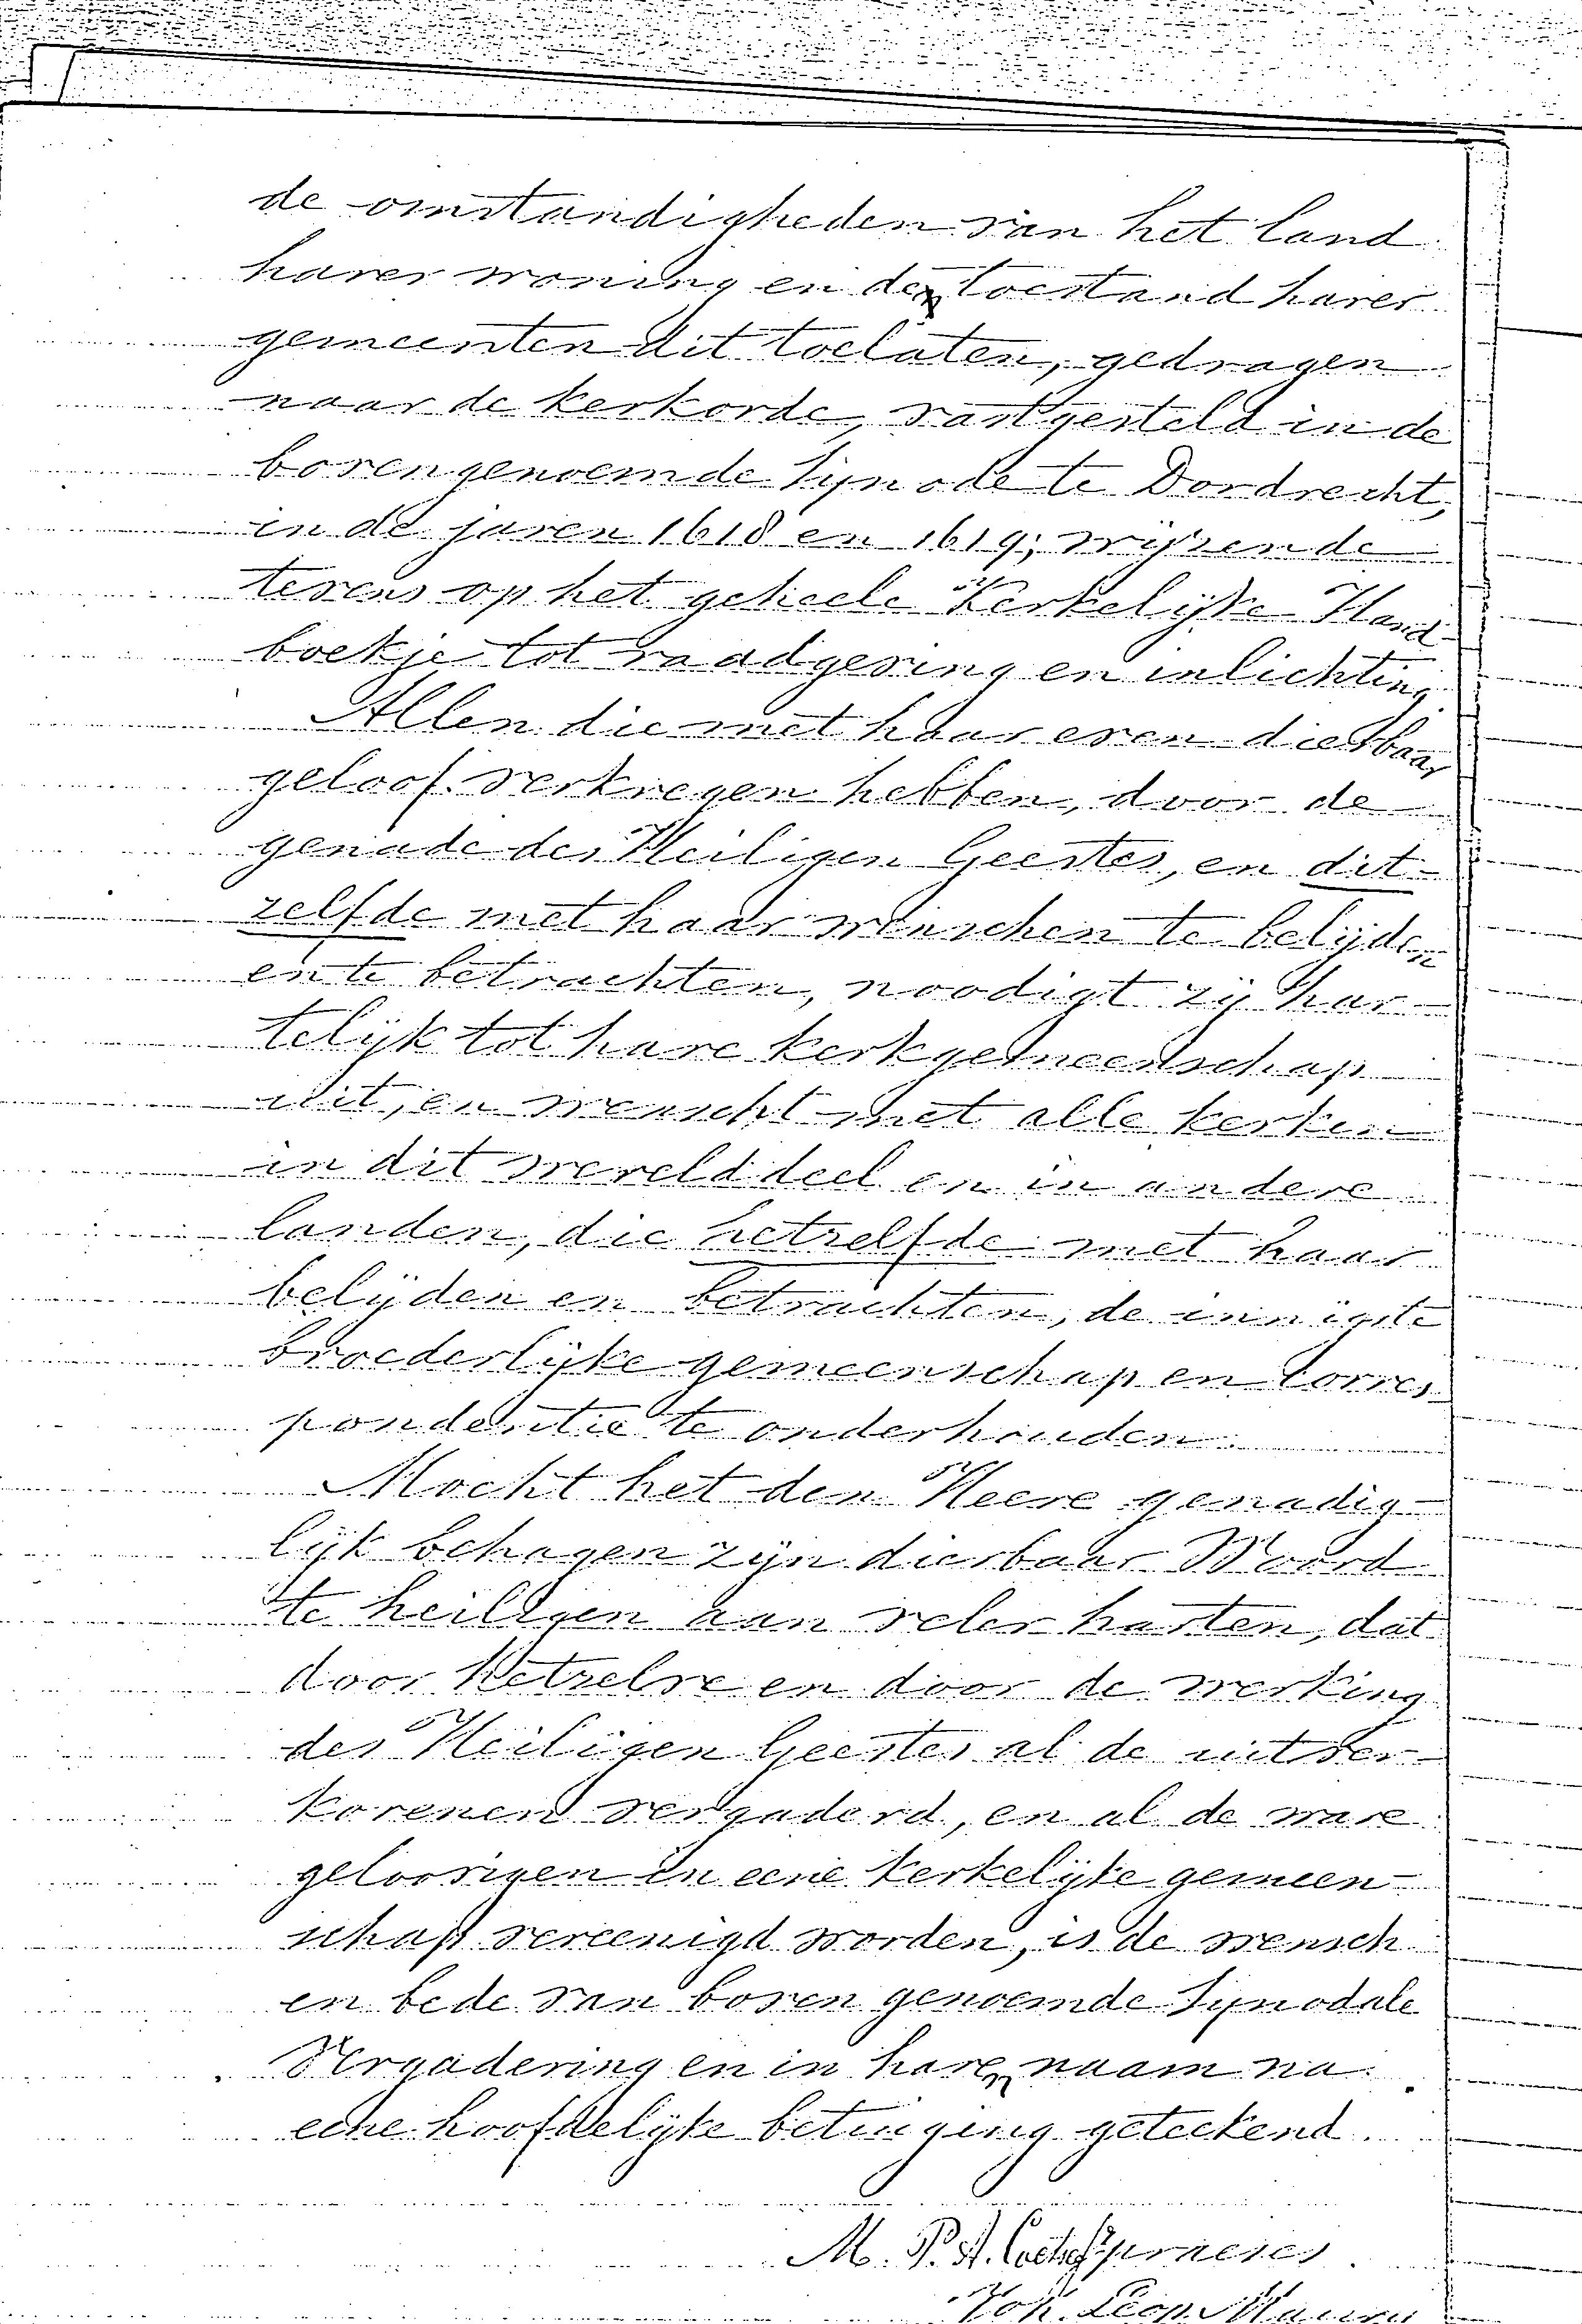 de omstandigheden van het land
harer woning en de toestand harer
gemeenten dit toelaten, gedragen
naar de kerkorde, vastgesteld in de
bovengenoemde Synode te Dordrecht,
in de jaren 1618 en 1619; wijzende
tevens op het geheele Kerkelijke Hand-
boekje tot raadgeving en inlichting.
Allen die met haar even dierbaar
geloof verkregen hebben, door de
genade des Heiligen Geestes, en dit-
zelfde met haar wenschen te belijden
en te betrachten, noodigt zij har-
telijk tot hare kerkgemeenschap
uit, en wenscht met alle kerken
in dit werelddeel en in andere
landen, die hetzelfde met haar
belijden en betrachten, de innigste
broederlijke gemeenschap en Corres-
pondentie te onderhouden.
Mocht het den Heere genadig-
lijk behagen zijn dierbaar Woord
te heiligen aan veler harten, dat
door hetzelve en door de werking
des Heiligen Geestes al de uitver-
korenen vergaderd, en al de ware
geloovigen in eene kerkelijke gemeen-
schap vereenigd worden, is de wensch
en bede van boven genoemde Synodale
Vergadering en in hare naam na
eene hoofdelijke betuiging geteekend.
M. P. A. Coetsee praeses
Joh. Leop. Maury